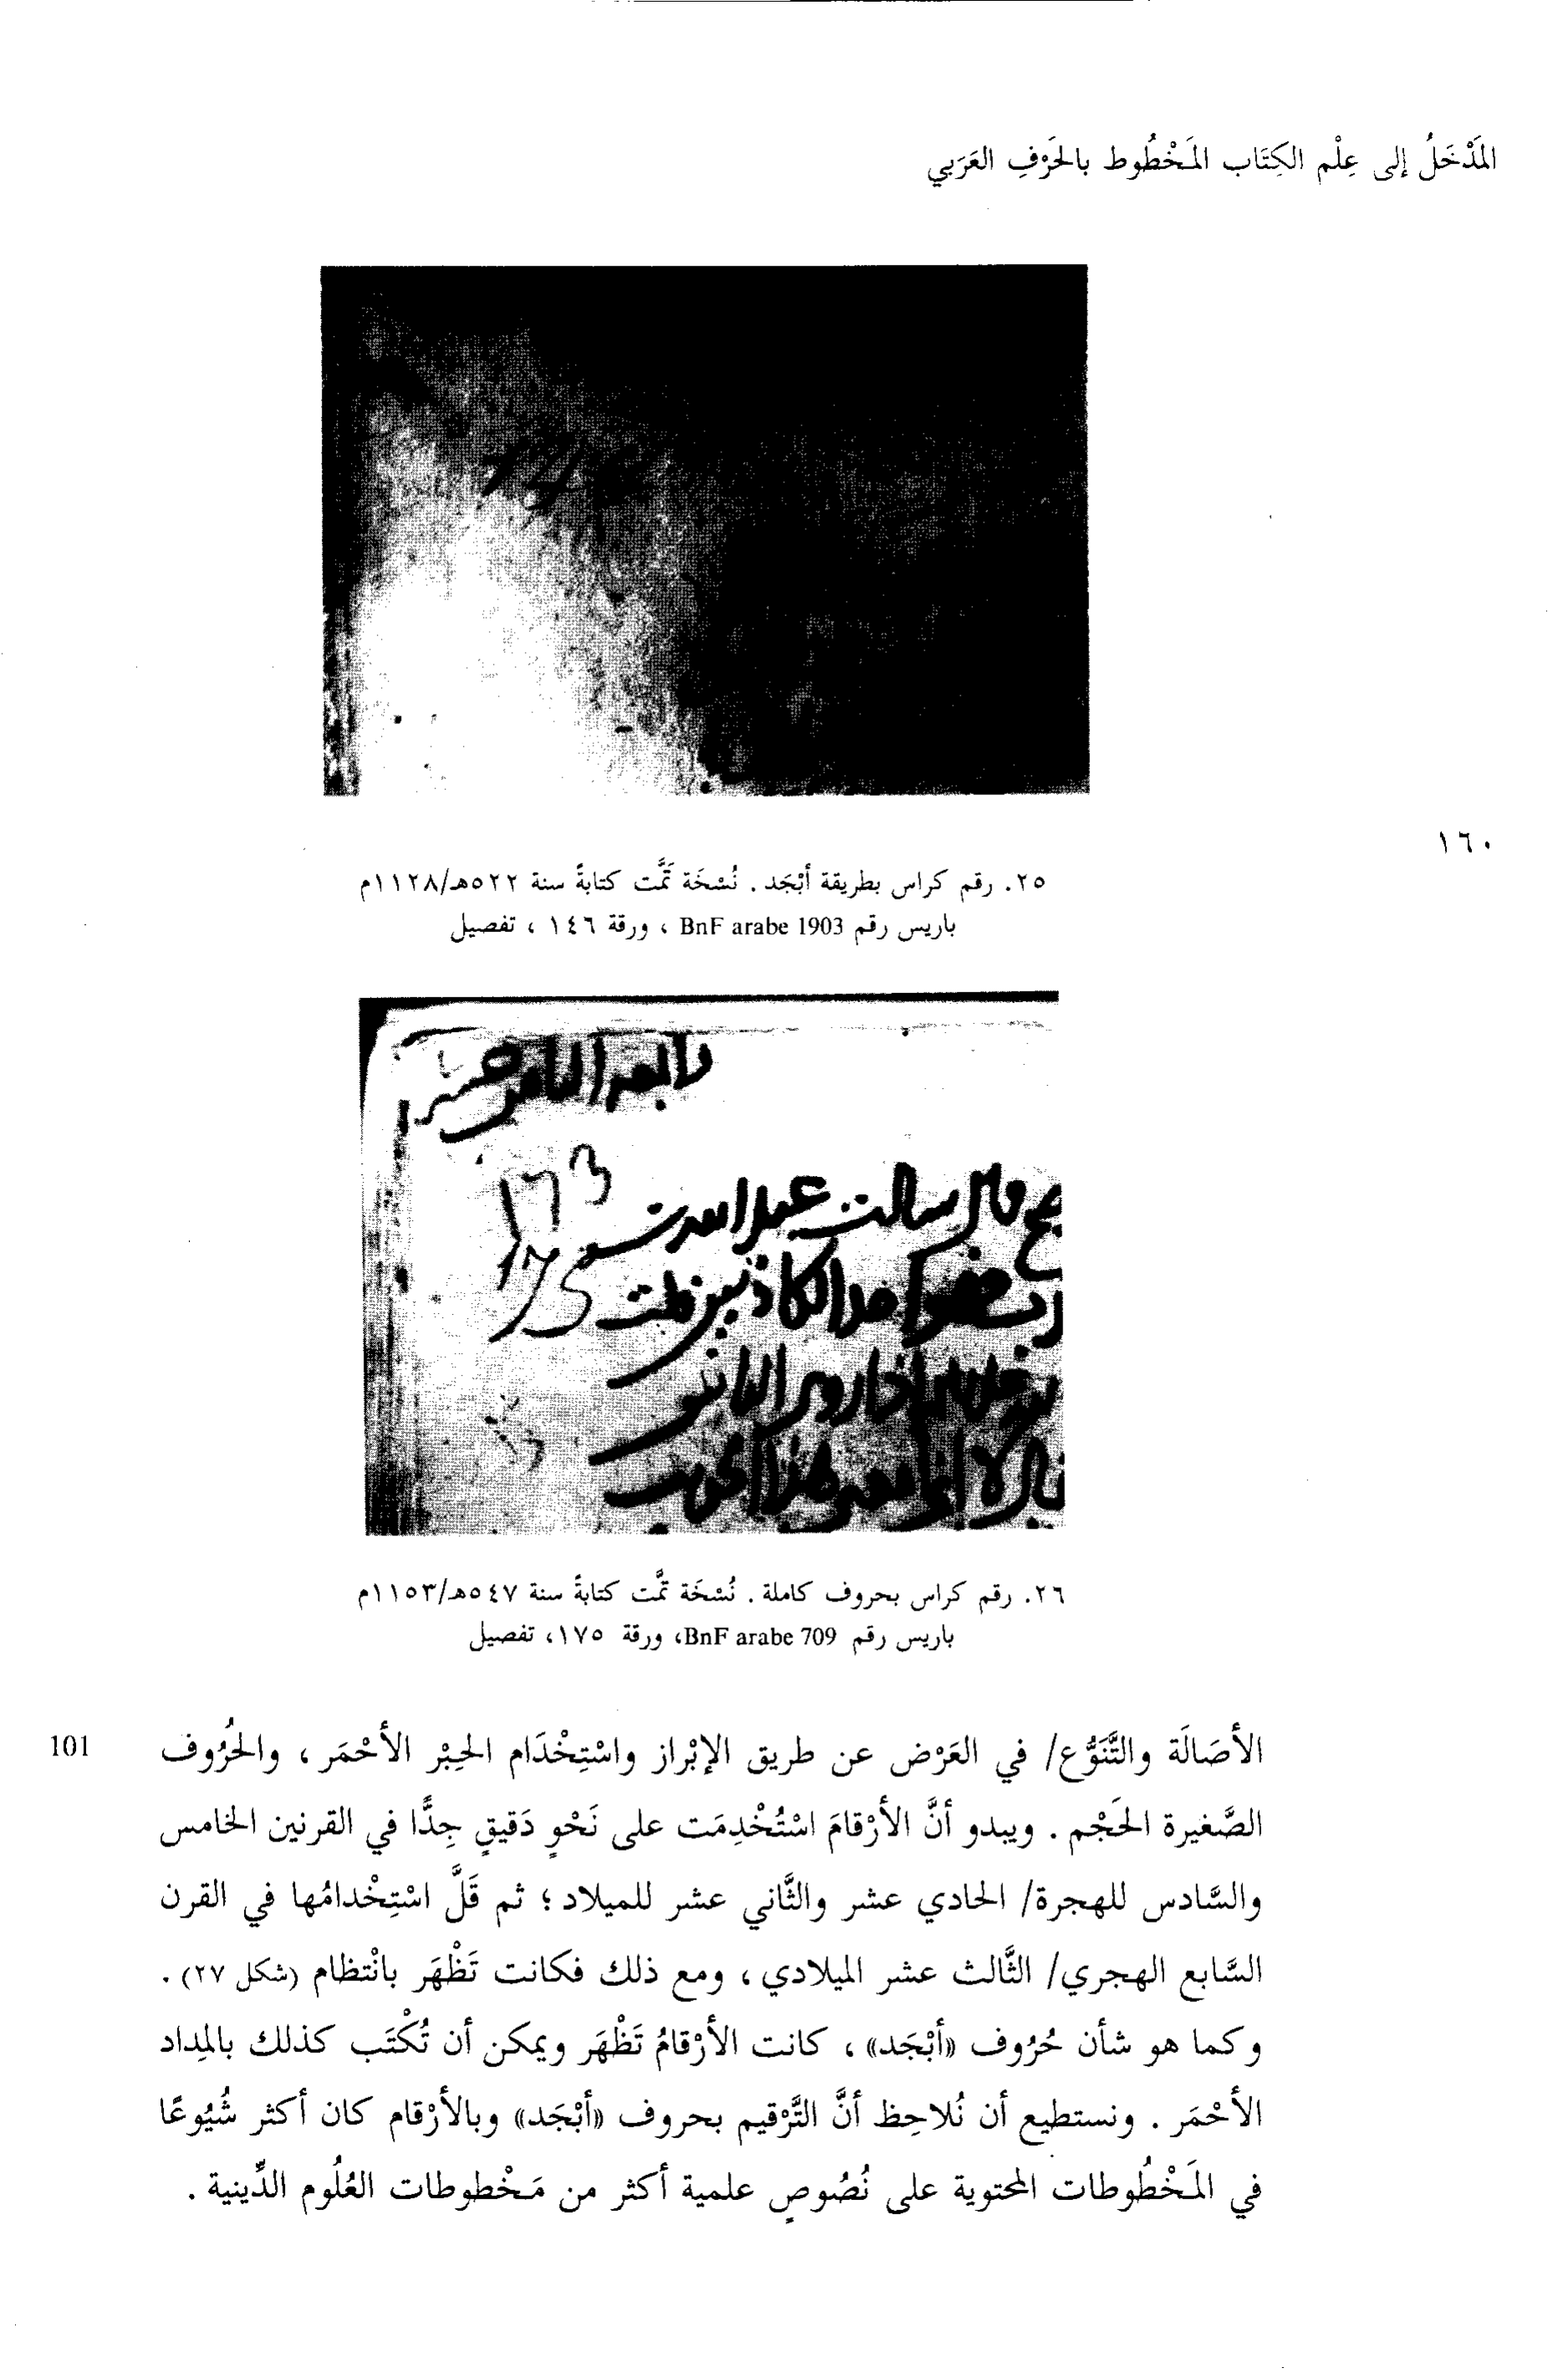 المَدْخَلُ إلى عِلْم الكِتَاب المَخْطُوط بالحَرْفِ العَرَبي
١٦٠
٢٥. رقم كراس بطريقة أبْجَد . نُسْخَة تَمَّت كتابةً سنة ٥٢٢هـ/١١٢٨م
باريس رقم BnF arabe 1903 ، ورقة ١٤٦ ، تفصيل
١٧٣
١٧٥
٢٦. رقم كراس بحروف كاملة . نُسْخَة تمَّت كتابةً سنة ٥٤٧هـ/١١٥٣م
باريس رقم BnF arabe 709، ورقة ١٧٥، تفصيل
101
الأصَالَة والتَّنَوُّع/ في العَرْض عن طريق الإبْراز واسْتِخْدَام الحِبْر الأحْمَر ، والحُرُوف
الصَّغيرة الحَجْم . ويبدو أنَّ الأرْقامَ اسْتُخْدِمَت على نَحْوٍ دَقيقٍ جِدًّا في القرنين الخامس
والسَّادس للهجرة/ الحادي عشر والثَّاني عشر للميلاد ؛ ثم قَلَّ اسْتِخْدامُها في القرن
السَّابع الهجري/ الثَّالث عشر الميلادي ، ومع ذلك فكانت تَظْهَر بانْتظام (شكل ٢٧) .
وكما هو شأن حُرُوف «أبْجَد» ، كانت الأرْقامُ تَظْهَر ويمكن أن تُكْتَب كذلك بالمِداد
الأحْمَر . ونستطيع أن نُلاحِظ أنَّ التَّرْقيم بحروف «أبْجَد» وبالأرْقام كان أكثر شُيُوعًا
في المَخْطُوطات المحتوية على نُصُوصٍ علمية أكثر من مَخْطوطات العُلُوم الدِّينية .